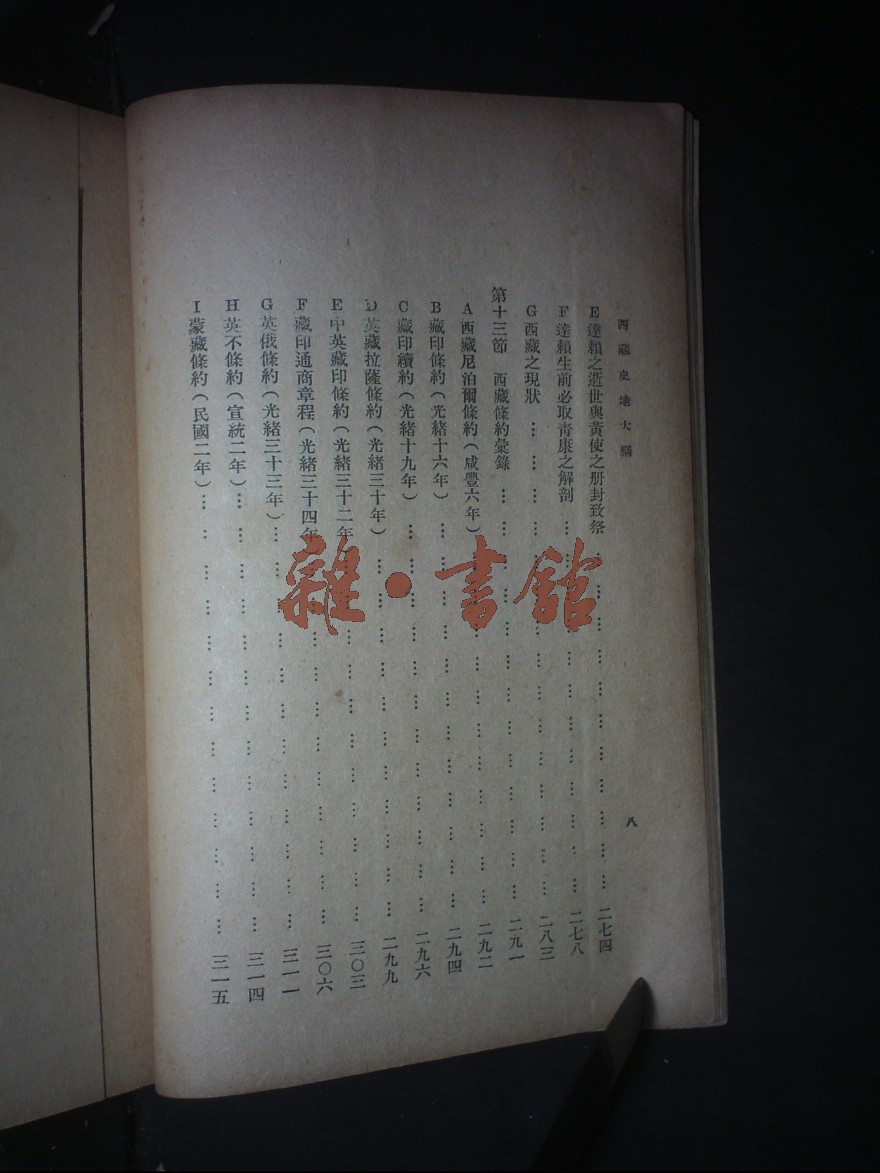 西藏史地大綱
八
E 達賴之逝世與黃使之册封致祭 … … … … … … … … … … … 二七四
F 達賴生前必取青康之解剖 … … … … … … … … … … … 二七八
G 西藏之現狀 … … … … … … … … … … … … … … 二八三
第十三節 西藏條約彙錄 … … … … … … … … … … … … 二九一
A 西藏尼泊爾條約(咸豐六年) … … … … … … … … … … 二九二
B 藏印條約(光緒十六年) … … … … … … … … … … … 二九四
C 藏印續約(光緒十九年) … … … … … … … … … … … 二九六
D 英藏拉薩條約(光緒三十年) … … … … … … … … … … 二九九
E 中英藏印條約(光緒三十二年) … … … … … … … … … 三〇三
F 藏印通商章程(光緒三十四年) … … … … … … … … … 三〇六
G 英俄條約(光緒三十三年) … … … … … … … … … … … 三一一
H 英不條約(宣統二年) … … … … … … … … … … … … 三一四
I 蒙藏條約(民國二年) … … … … … … … … … … … … 三一五
雜·書館